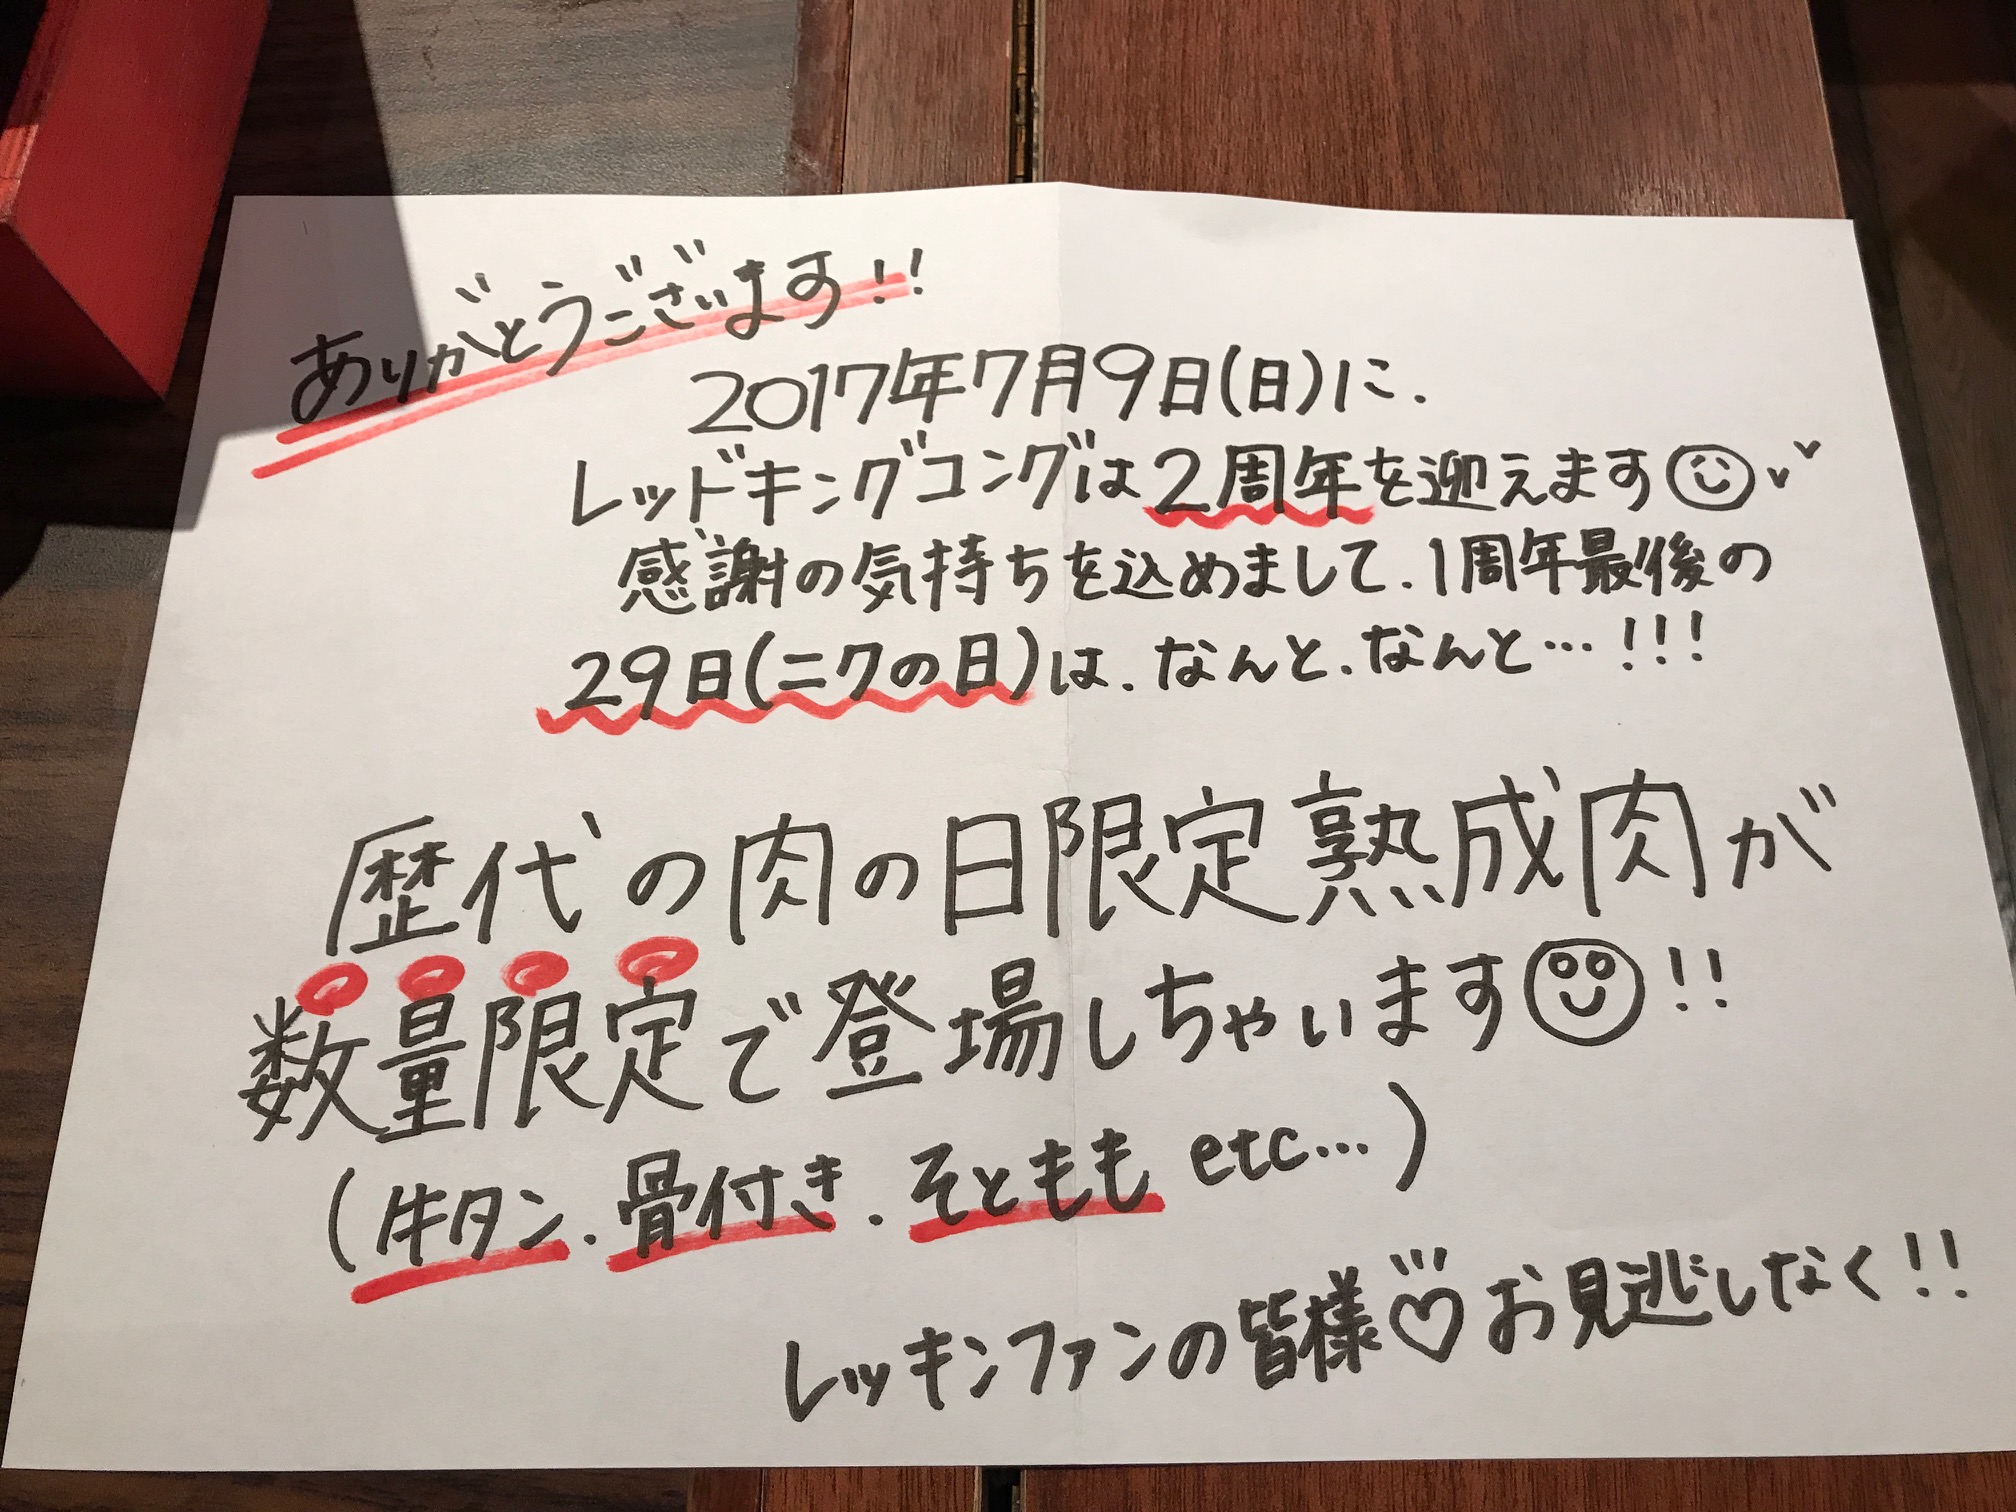 ありがとうございます!!
2017年7月9日(日)に、
レッドキングコングは2周年を迎えます
感謝の気持ちを込めまして、1周年最後の
29日(ニクの日)は、なんと、なんと…!!!
歴代の肉の日限定熟成肉が
数量限定で登場しちゃいます!!
(牛タン、骨付き、そともも etc…)
レッキンファンの皆様♡お見逃しなく!!